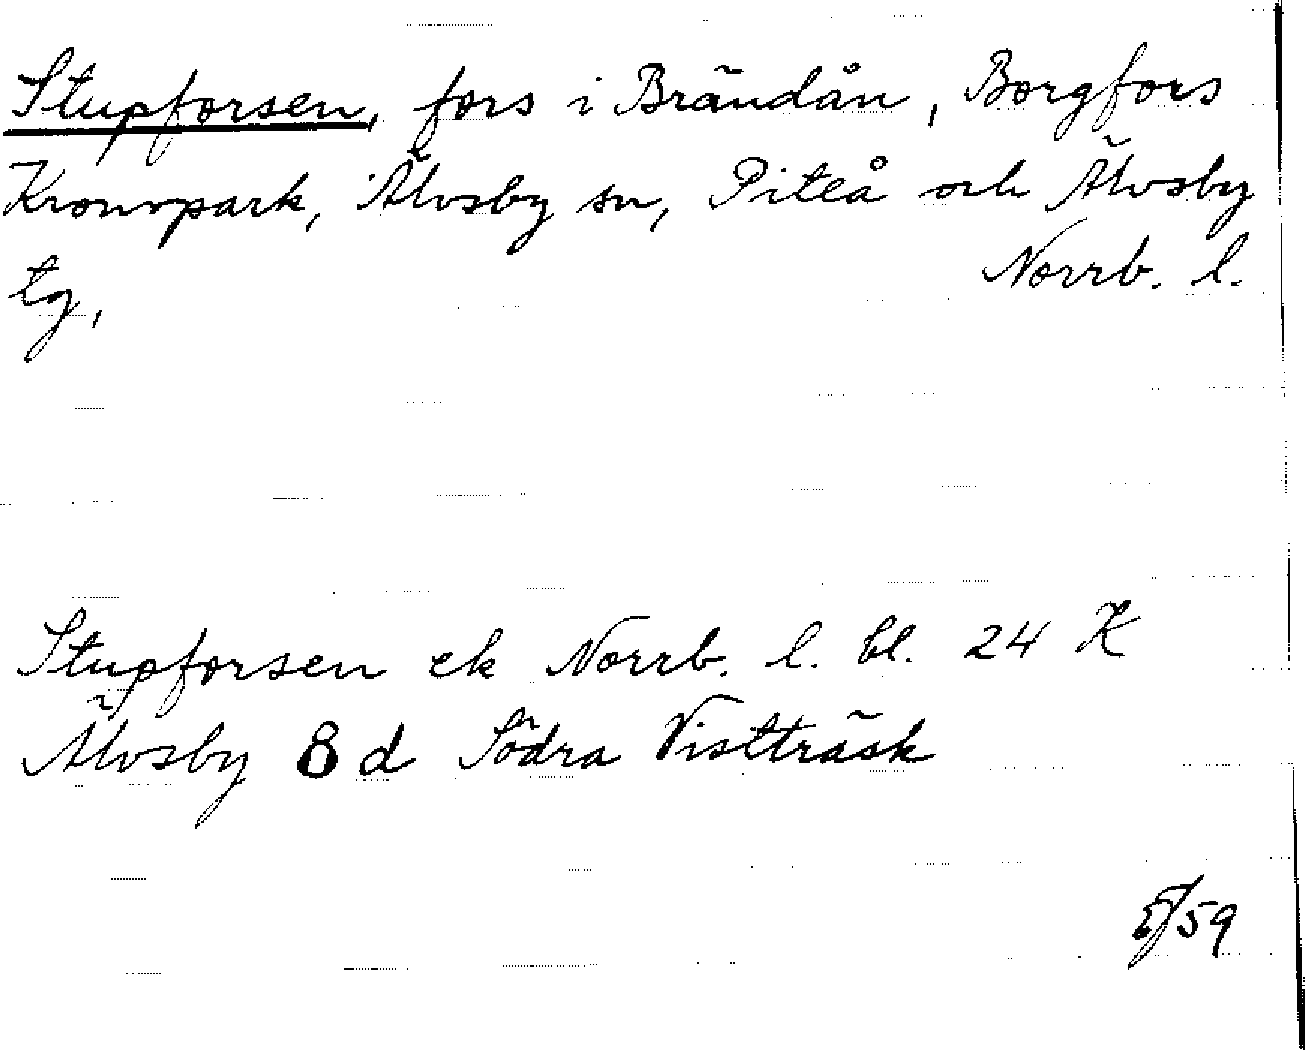 Stupforsen, fors i Brändån, Borgfors
Kronopark, Älvsby sn, Piteå och Älvsby
tg,
Norrb. l.
Stupforsen ek Norrb. l. bl. 24 K
Älvsby 8 d Södra Vistträsk
/59